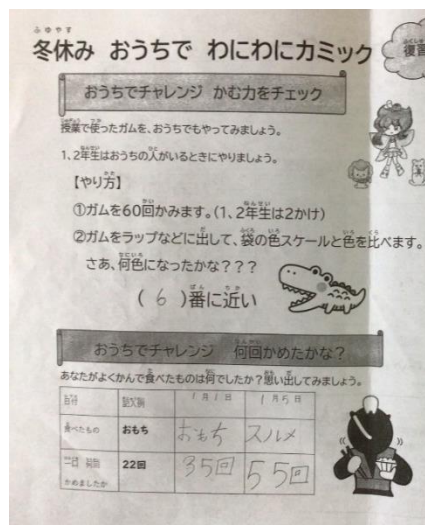 ふゆやす
冬休み おうちで わにわにカミック
復習
おうちでチャレンジ かむ力をチェック
授業で使ったガムを、おうちでもやってみましょう。
1、2年生はおうちの人がいるときにやりましょう。
【やり方】
①ガムを60回かみます。(1、2年生は2かけ)
②ガムをラップなどに出して、袋の色スケールと色を比べます。
さあ、何色になったかな？？？
( 6 )番に近い
おうちでチャレンジ 何回かめたかな？
あなたがよくかんで食べたものは何でしたか？思い出してみましょう。
日付 記入例 1月1日 1月5日
食べたもの おもち おもち スルメ
一口 何回 22回 35回 55回
かめましたか